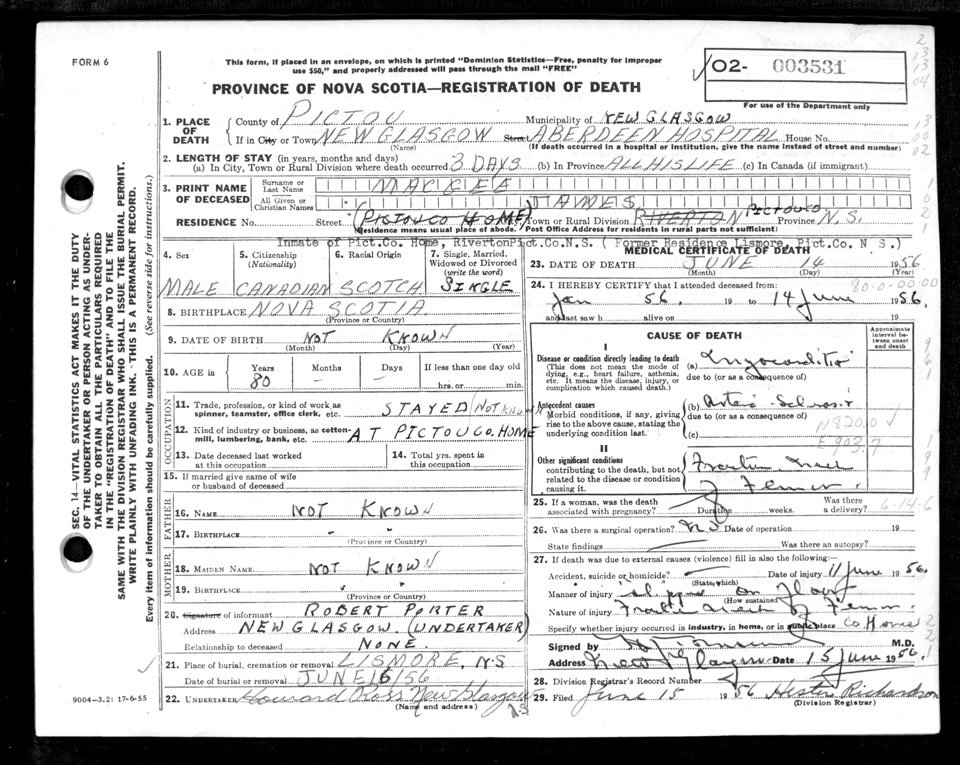 FORM 6
This form, if placed in an envelope, on which is printed "Dominion Statistics—Free, penalty for improper
use $50," and properly addressed will pass through the mail "FREE"
PROVINCE OF NOVA SCOTIA—REGISTRATION OF DEATH
02- 003531
For use of the Department only
1. PLACE OF DEATH
County of PICTOU Municipality of NEW GLASGOW
If in City or Town NEW GLASGOW Street ABERDEEN HOSPITAL House No.
(Name) (If death occurred in a hospital or institution, give the name instead of street and number)
2. LENGTH OF STAY (in years, months and days)
(a) In City, Town or Rural Division where death occurred 3 DAYS (b) In Province ALL HIS LIFE (c) In Canada (if immigrant)
3. PRINT NAME OF DECEASED
Surname or Last Name MACKEA
All Given or Christian Names JAMES
RESIDENCE No. Street (PICTOU CO HOME) Town or Rural Division RIVERTON PICTOU CO Province N.S.
(Residence means usual place of abode. Post Office Address for residents in rural parts not sufficient)
Inmate of Pict.Co. Home, RivertonPict.Co.N.S. ( Former Residence Lismore, Pict.Co. N S.)
4. Sex MALE
5. Citizenship (Nationality) CANADIAN
6. Racial Origin SCOTCH
7. Single, Married, Widowed or Divorced (write the word) SINGLE
8. BIRTHPLACE NOVA SCOTIA
(Province or Country)
9. DATE OF BIRTH NOT KNOWN
(Month) (Day) (Year)
10. AGE in Years Months Days If less than one day old
80 — — hrs. or min.
OCCUPATION
11. Trade, profession, or kind of work as spinner, teamster, office clerk, etc. STAYED (NOT KNOWN
12. Kind of industry or business, as cotton-mill, lumbering, bank, etc. AT PICTOU CO. HOME
13. Date deceased last worked at this occupation
14. Total yrs. spent in this occupation
15. If married give name of wife or husband of deceased
FATHER
16. NAME NOT KNOWN
17. BIRTHPLACE -
(Province or Country)
MOTHER
18. MAIDEN NAME NOT KNOWN
19. BIRTHPLACE
(Province or Country)
20. Signature of informant ROBERT PORTER
Address NEW GLASGOW. (UNDERTAKER)
Relationship to deceased NONE.
21. Place of burial, cremation or removal LISMORE, N.S
Date of burial or removal JUNE 16/56
22. UNDERTAKER Howard Ross New Glasgow
(Name and address) N.S
MEDICAL CERTIFICATE OF DEATH
23. DATE OF DEATH JUNE 14 1956
(Month) (Day) (Year)
24. I HEREBY CERTIFY that I attended deceased from:
80-0-00-00
Jan 56. 19 to 14 June 1956.
and last saw h alive on 19
CAUSE OF DEATH
Approximate interval between onset and death
I
Disease or condition directly leading to death
(This does not mean the mode of dying, e.g., heart failure, asthenia, etc. It means the disease, injury, or complication which caused death.)
(a) Myocarditis
due to (or as a consequence of)
Antecedent causes
Morbid conditions, if any, giving rise to the above cause, stating the underlying condition last.
(b)
due to (or as a consequence of)
(c)
N820.0
E903.7
II
Other significant conditions
contributing to the death, but not related to the disease or condition causing it.
of Femur
25. If a woman, was the death associated with pregnancy? Duration weeks. Was there a delivery?
6-14-6
26. Was there a surgical operation? No Date of operation 19
State findings Was there an autopsy?
27. If death was due to external causes (violence) fill in also the following:—
Accident, suicide or homicide? Date of injury 11 June 1956.
(State, which)
Manner of injury slipped on floor
(How sustained)
Nature of injury of Femur.
Specify whether injury occurred in industry, in home, or in public place Co Home
Signed by M.D.
Address New Glasgow Date 15 June 1956
28. Division Registrar's Record Number
29. Filed June 15 1956 Hester Richardson
(Division Registrar)
SEC. 14—VITAL STATISTICS ACT MAKES IT THE DUTY
OF THE UNDERTAKER OR PERSON ACTING AS UNDER-
TAKER TO OBTAIN ALL THE PARTICULARS REQUIRED
IN THE "REGISTRATION OF DEATH" AND TO FILE THE
SAME WITH THE DIVISION REGISTRAR WHO SHALL ISSUE THE BURIAL PERMIT.
WRITE PLAINLY WITH UNFADING INK.—THIS IS A PERMANENT RECORD.
Every item of information should be carefully supplied. (See reverse side for instructions.)
9004-3.21: 17-6-55